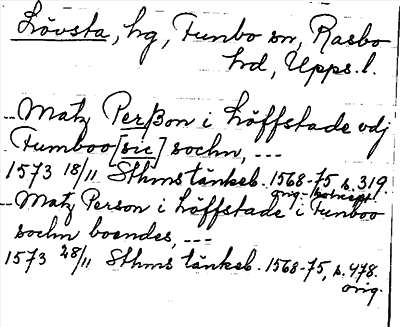 Lövsta, hg, Funbo sn, Rasbo
hd, Upps. l.
--- Matz Perßon i Löffstade vdj
Fumboo [sic] sochn, ---
1573 18/11 Sthms tänkeb. 1568-75 s. 319.
orig.-koncept.
--- Matz Person i Löffstade i Funboo
sochn boendes, ---
1573 28/11 Sthms tänkeb. 1568-75, s. 478.
orig.